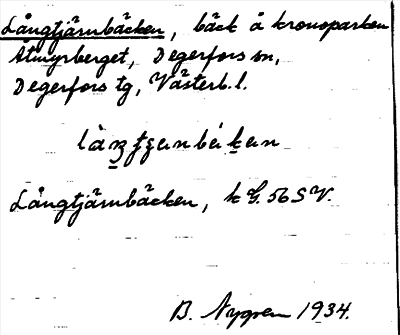 Långtjärnbäcken, bäck å kronoparken
Atmyrberget, Degerfors sn,
Degerfors tg, Västerb. l.
Långtjärnbäcken, k G. 56 S V.
B. Nygren 1934.